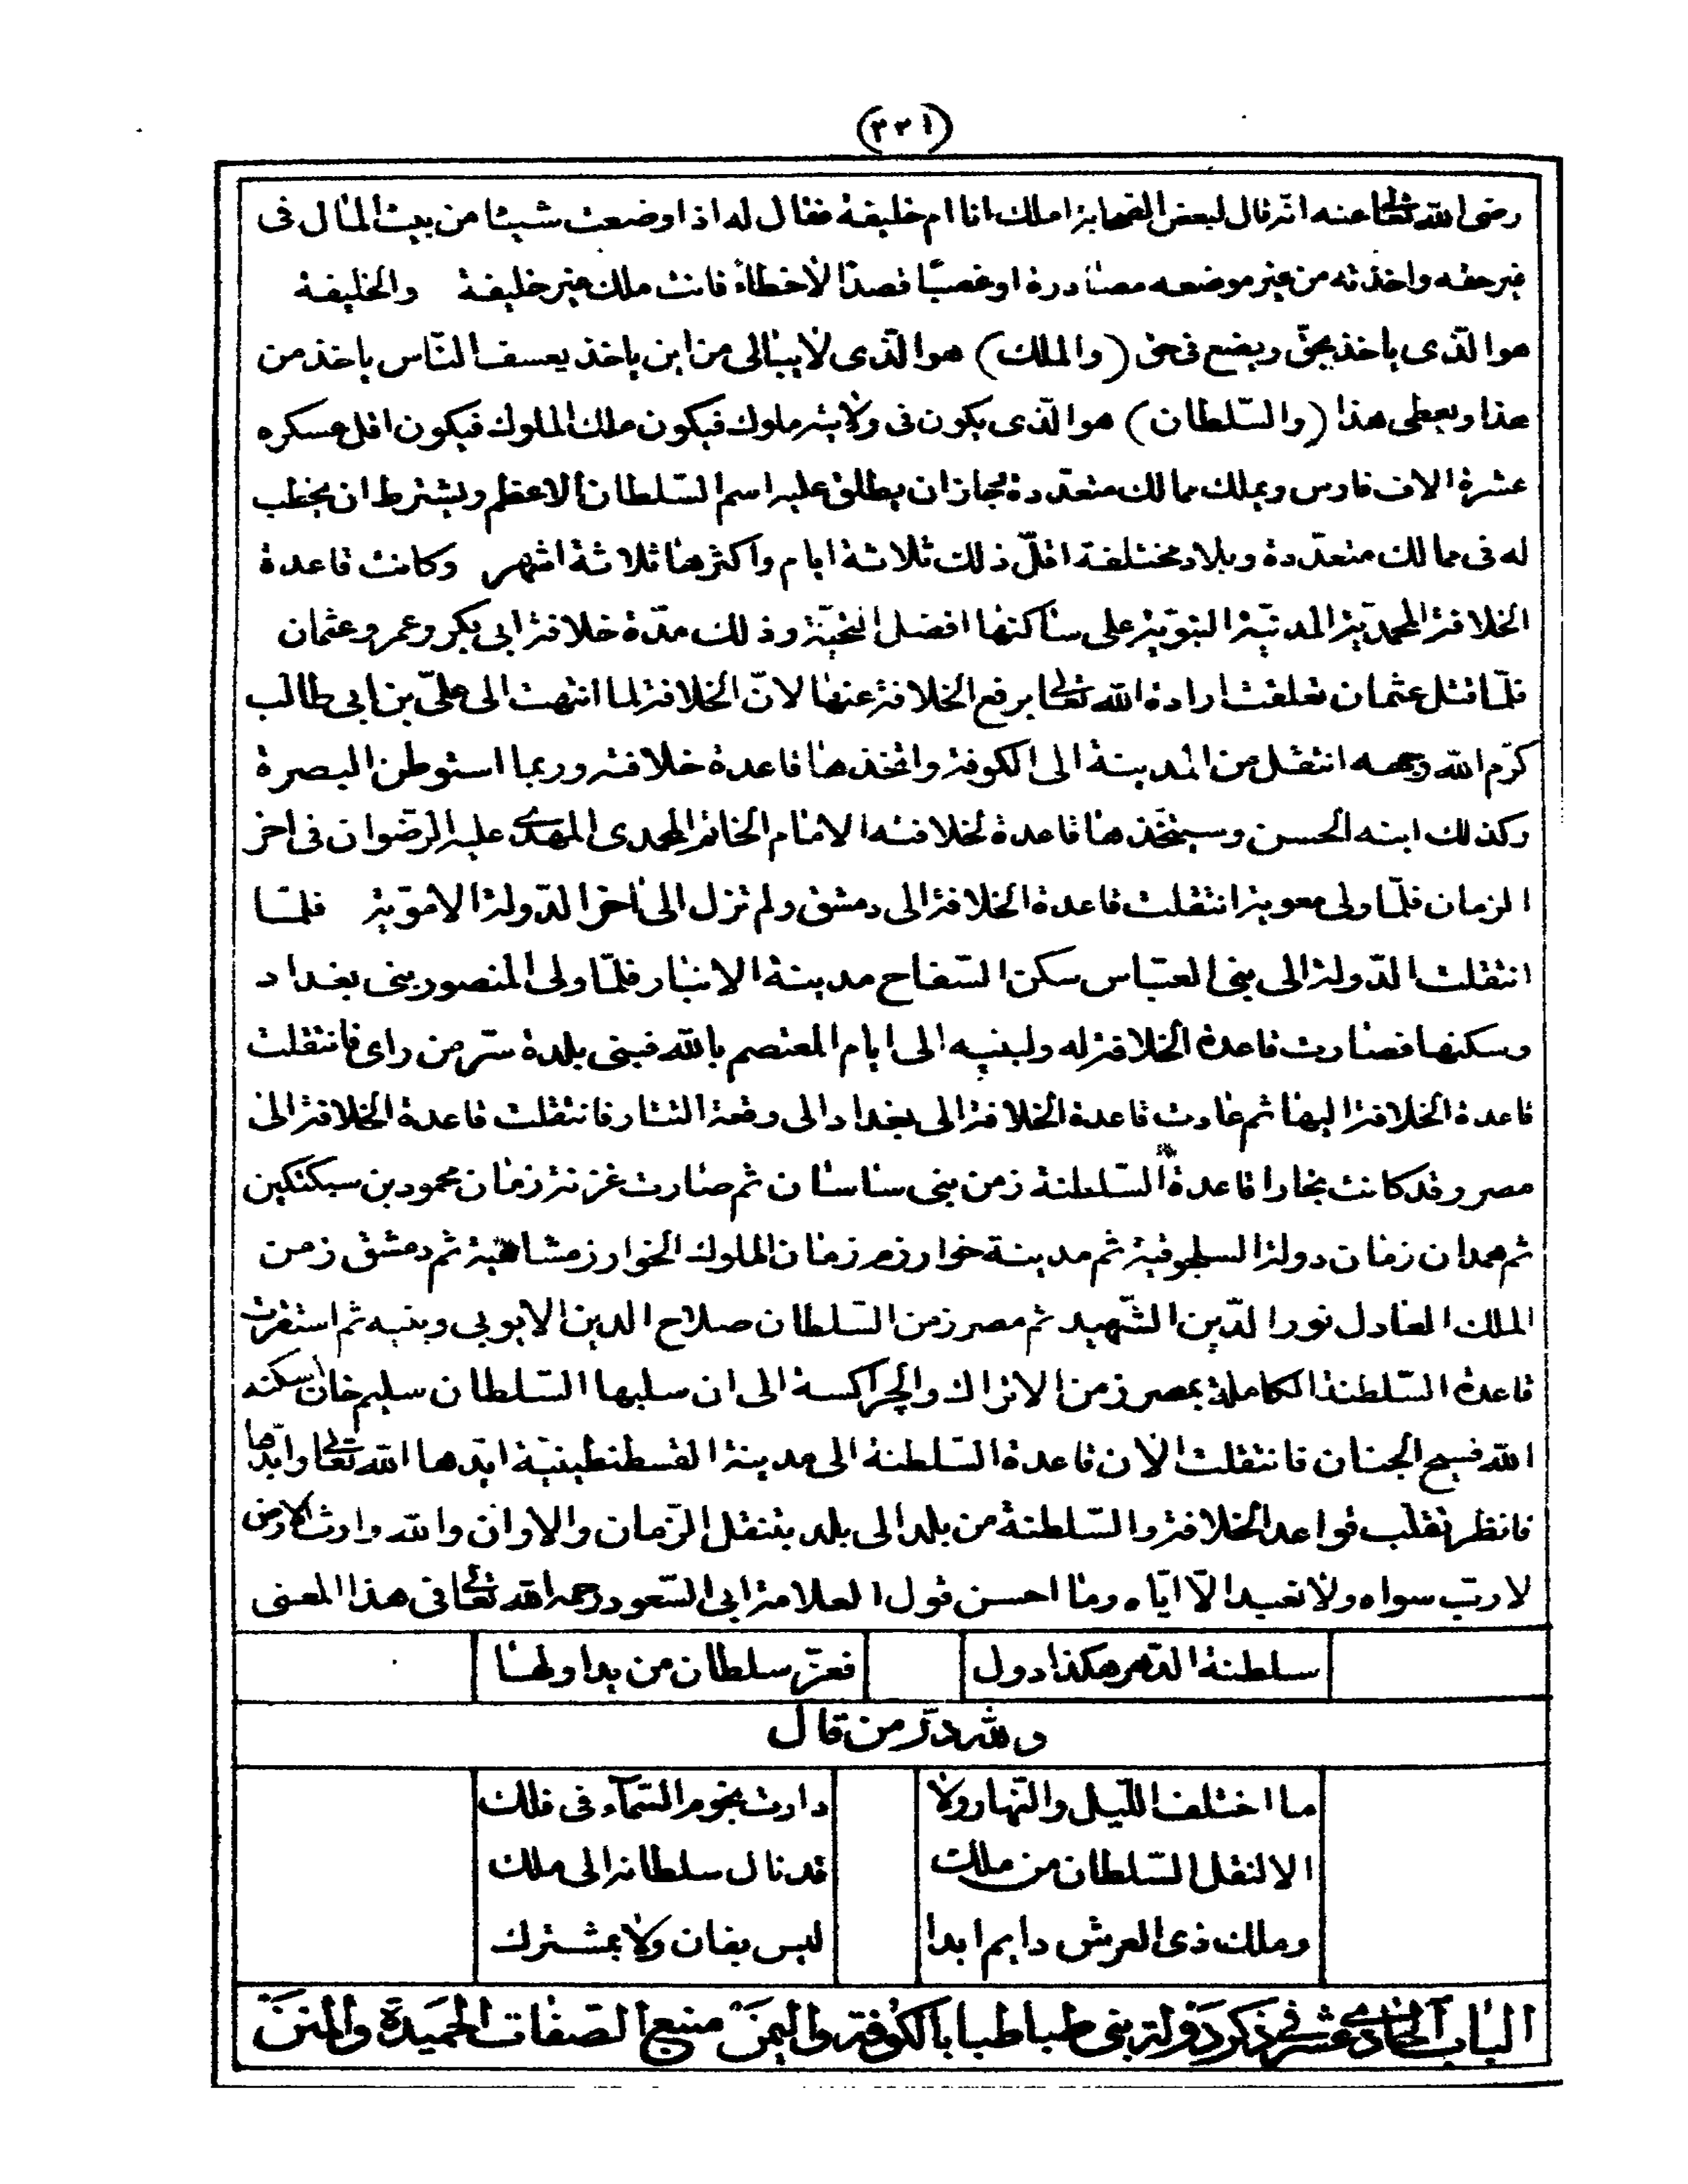 (٣٢١)
رضى الله تعالى عنه انه قال لبعض الصحابة املك انا ام خليفة فقال له اذا وضعت شيئا من بيت المال فى
غير حقه واخذته من غير موضعه مصادرة او غصبا قصدا لاخطاء فانت ملك غير خليفة والخليفة
هو الّذى ياخذ بحقّ ويضع فى حق (والملك) هو الّذى لا يبالى من اين ياخذ يعسف النّاس ياخذ من
هذا ويعطى هذا (والسّلطان) هو الّذى يكون فى ولايته ملوك فيكون ملك الملوك فيكون اقل عسكره
عشرة الاف فارس ويملك ممالك متعدّدة جاز ان يطلق عليه اسم السّلطان الاعظم ويشترط ان يخطب
له فى ممالك متعدّدة وبلاد مختلفة اقلّ ذلك ثلاثة ايام واكثرها ثلاثة اشهر وكانت قاعدة
الخلافة المحمدية المدنيّة النبوية على ساكنها افضل التحيّة وذلك مدّة خلافة ابى بكر وعمر وعثمان
فلمّا قتل عثمان تعلقت ارادة الله تعالى برفع الخلافة عنها لانّ الخلافة لما انتهت الى علىّ بن ابى طالب
كرّم الله وجهه انتقل من المدينة الى الكوفة واتخذها قاعدة خلافته وربما استوطن البصرة
وكذلك ابنه الحسن وسيتخذها قاعدة لخلافته الامام الخاتم المحمدى المهدى عليه الرضوان فى اخر
الزمان فلمّا ولى معوية انتقلت قاعدة الخلافة الى دمشق ولم تزل الى اخر الدّولة الامويّة فلمّا
انتقلت الدّولة الى بنى العبّاس سكن السّفاح مدينة الانبار فلمّا ولى المنصور بنى بغداد
وسكنها فصارت قاعدة الخلافة له ولبنيه الى ايام المعتصم بالله فبنى بلدة سرّ من راى فانتقلت
قاعدة الخلافة اليها ثم عادت قاعدة الخلافة الى بغداد الى وقعة التتار فانتقلت قاعدة الخلافة الى
مصر وقد كانت بخارا قاعدة السّلطنة زمن بنى ساسان ثم صارت غزنة زمان محمود بن سبكتكين
ثم همدان زمان دولة السلجوقية ثم مدينة خوارزم زمان الملوك الخوارزمشاهية ثم دمشق زمن
الملك العادل نور الدّين الشّهيد ثم مصر زمن السّلطان صلاح الدين الايوبى وبنيه ثم استقرت
قاعدة السّلطنة الكاملة بمصر زمن الاتراك والجراكسة الى ان سلبها السّلطان سليم خان اسكنه
الله فسيح الجنان فانتقلت الان قاعدة السّلطنة الى مدينة القسطنطينيّة ايّدها الله تعالى وابّدها
فانظر تقلّب قواعد الخلافة والسّلطنة من بلد الى بلد بتنقل الزّمان والاوان والله وارث الارض
لا ربّ سواه ولا نعبد الّا ايّاه وما احسن قول العلامة ابى السّعود رحمه الله تعالى فى هذا المعنى
سلطنة الدّهر هكذا دول فعزّ سلطان من يداولها
ولله درّ من قال
ما اختلف اللّيل والنّهار ولا دارت نجوم السّمآء فى فلك
الا لنقل السّلطان من ملك قد نال سلطانه الى ملك
وملك ذى العرش دايم ابدا ليس بفان ولا بمشترك
الباب الحادى عشر فى ذكر دولة بنى طباطبا بالكوفة واليمن منبع الصّفات الحميدة والمنن